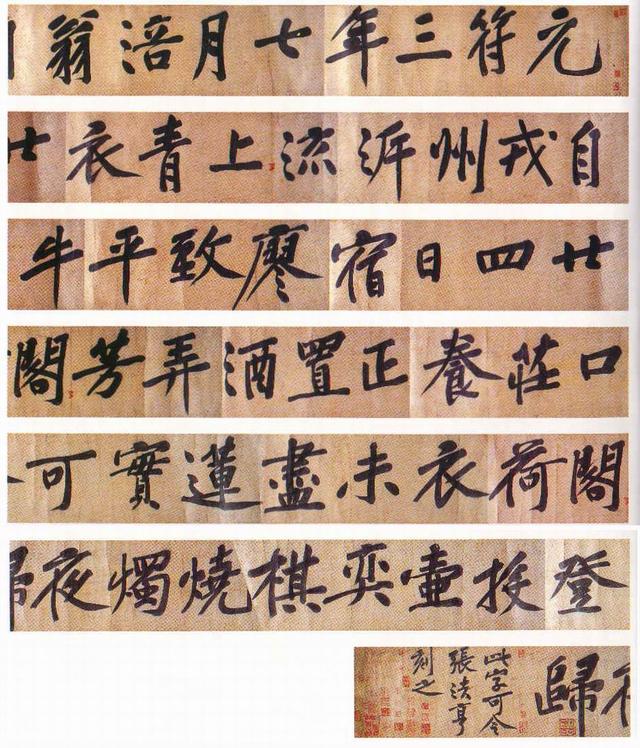 元符三年七月涪翁
自戎州泝流上青衣廿
廿四日宿廖致平牛
口莊養正置酒弄芳閣
閣荷衣未盡蓮實可
登投壺奕棋燒燭夜
歸
此字可令
張法亨
刻之